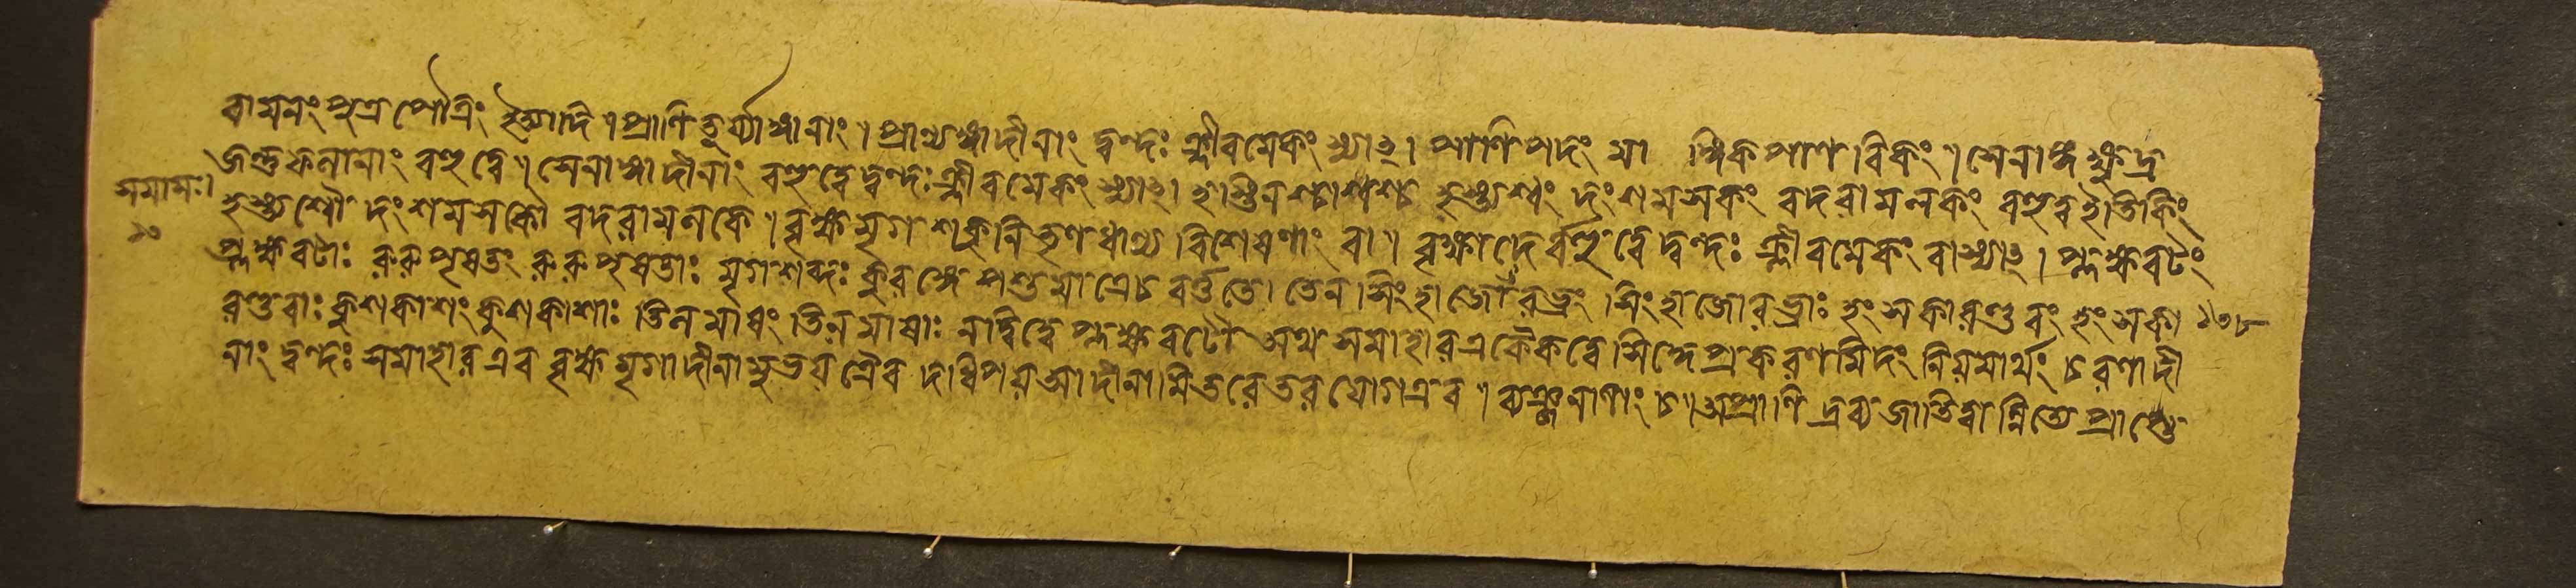 বামনং পুত্র পৌত্রিং ইত্যাদি । প্রাণি তূর্য্যাঙ্গানাং । প্রাণ্যঙ্গাদীনাং দ্বন্দ্বঃ ক্লীবমেকং স্যাৎ । পাণি পাদং মা র্দ্দঙ্গিক পাণ বিকং । সেনাঙ্গ ক্ষুদ্র
জন্তু ফলানাং বহুত্বে । সেনাঙ্গাদীনাং বহুত্বে দ্বন্দ্বঃ ক্লীবমেকং স্যাৎ । হস্তিনশ্চাশ্বাশ্চ হস্ত্যশ্বং দংশমসকং বদরামলকং বহুত্ব ইতি কিং
সমাসঃ।
হস্ত্যশ্বৌ দংশমসকৌ বদরামলকে । বৃক্ষ মৃগ শকুনি তৃণ ধান্য বিশেষাণাং বা । বৃক্ষাদের্বহুত্বে দ্বন্দ্বঃ ক্লীবমেকং বা স্যাৎ । প্লক্ষবটং
প্লক্ষবটাঃ রুরুপৃষতং রুরুপৃষতাঃ মৃগশব্দঃ কুরঙ্গে পশুমাত্রে চ বর্ত্ততে । তেন সিংহাজোরভ্রং সিংহাজোরভ্রাঃ হংসকারণ্ডবং হংসকা
রণ্ডবাঃ কুশকাশং কুশকাশাঃ তিলমাষং তিলমাষাঃ নাদ্বিত্বে প্লক্ষবটৌ অত্র সমাহার একৈকত্বে সিদ্ধে প্রকরণমিদং নিয়মার্থং চরণাদী
নাং দ্বন্দ্বঃ সমাহার এব বৃক্ষ মৃগাদীনামুভয়ত্রৈব দধিপয়আদীনামিতরেতরযোগএব । ব্যঞ্জনানাং চ । অপ্রাণি দ্রব্য জাতিবাচিনিতে প্রাপ্তে